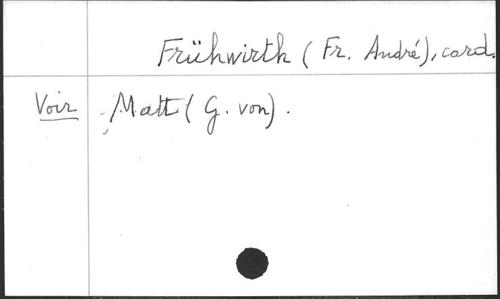 Frühwirth (Fr. André), card.
Voir Matt (G. von).